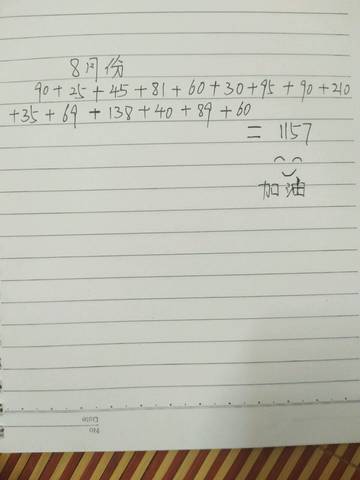 8月份
90+25+45+81+60+30+95+90+210
+35+69+138+40+89+60
=1157
加油
No
Date